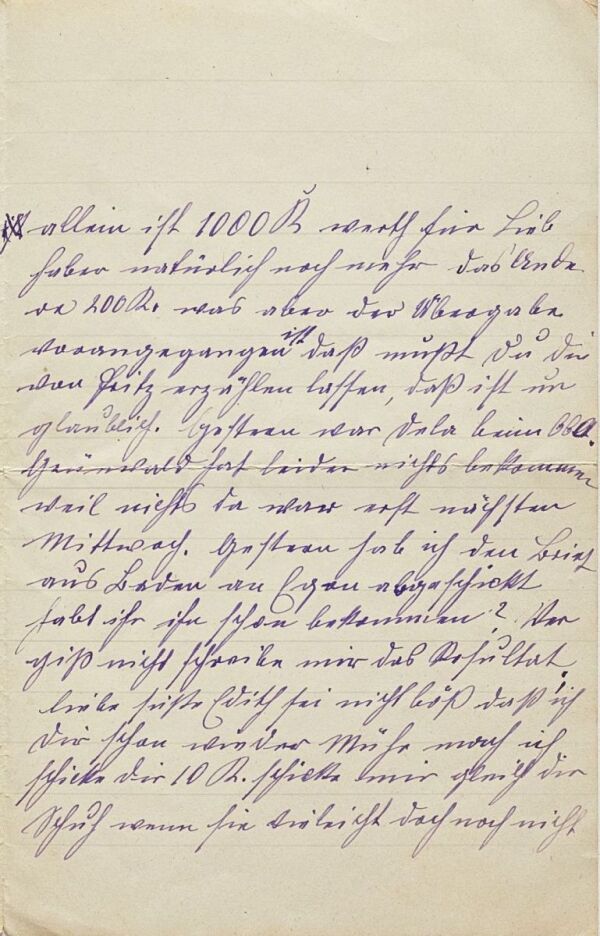 ist allein ist 1000 K werth für Lieb
haber natürlich noch mehr das Ande
re 200 K. was aber der Übergabe
vorangegangen ist daß mußt Du dir
von Fritz erzählen lassen, daß ist un
glaublich. Gestern war Dela beim
Grünwald hat leider nichts bekommen
weil nichts da war erst nächsten
Mittwoch. Gestern hab ich den Brief
aus Baden an Egon abgeschickt
habt ihr ihn schon bekommen? Ver
giß nicht schreibe mir das Resultat!
liebe süße Edith sei nicht böß daß ich
Dir schon wieder Mühe mach ich
schicke dir 10 K. schicke mir gleich die
Schuh wenn sie vieleicht doch noch nicht